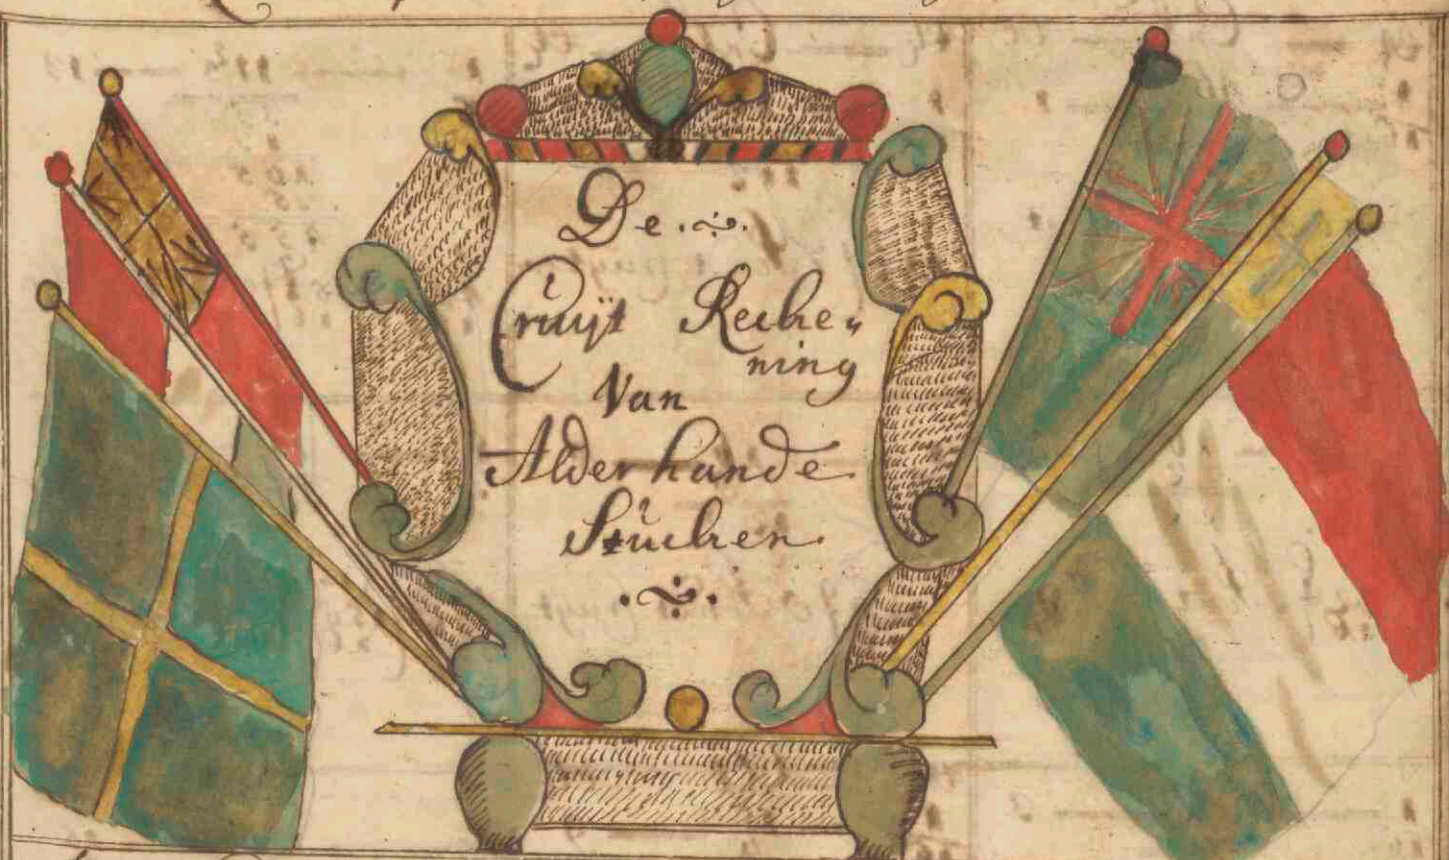 De
Cruijt Reche„
ning
Van
Alderhande
Stucken